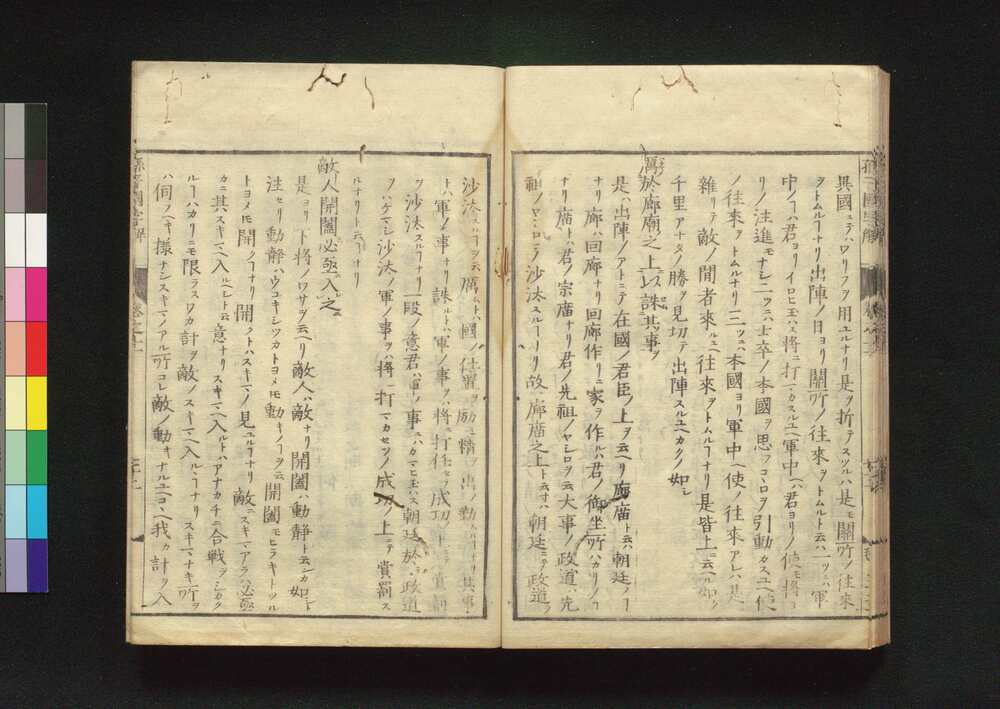 異國ニテハワリフヲ用ユルナリ是ヲ折テスツルハ是モ關所ノ往來
ヲトムルヿナリ出陣ノ日ヨリ關所ノ往來ヲトムルト云ハ一ツニハ軍
中ノヿハ君ヨリイロヒ玉ハズ將ニ打マカスルユヘ軍中ヘ君ヨリノ使モ將ヨ
リノ注進モナシ二ツニハ士卒ノ本國ヲ思フコヽロヲ引動カスユヘ使
ノ往來ヲトムルナリ三ツニハ本國ヨリ軍中ヘ使ノ往來アレハ是ニ
雜リテ敵ノ間者來ルユヘ往來ヲトムルナリ是皆上ニ云ヘル如ク
千里アナタノ勝ヲ見切テ出陣スルユヘカクノ如シ
厲於廊廟之上以誅其事
是ハ出陣ノアトニテ在國ノ君臣ノ上ヲ云ヘリ廊廟ト云ハ朝廷ノヿ
ナリ廊ハ回廊ナリ回廊作リニ家ヲ作ルハ君ノ御坐所ハカリノヿ
ナリ廟トハ君ノ宗廟ナリ君ノ先祖ノヤシロヲ云大事ノ政道ハ先
祖ノヤシロニテ沙汰スルヿアリ故ニ廊廟之上ト云寸ハ朝廷ニテ政道ノ
沙汰スルヿヲ云厲ムトハ國ノ仕置ヲ勵ミ精ヲ出ノ勤ルヿナリ其事
トハ軍ノ事ナリ誅ルトハ軍ノ事ヲハ將ニ打任セテ成功ノ上ニテ賞罰
ヲ沙汰スルヿナリ一段ノ意君ハ軍ノ事ニハカマヒ玉ハス朝廷ニ於テ政道
ヲハケマシ沙汰ノ軍ノ事ヲハ將ニ打マカセテ成功ノ上ニテ賞罰ス
ルナリト云ヿナリ
敵人開闔必亟入之
是ヨリ下將ノワサヲ云ヘリ敵人ハ敵ナリ開闔ハ動静ト云シカ如ト
注セリ動静ハウコキシツカトヨメモ動キノヿヲ云開闔モヒラキトツル
トヨメモ開クノヿナリ開クトハスキマノ見ユルヿナリ敵ニスキマアラハ必亟
カニ其スキマヘ入ルヘシト云意ナリスキマヘ入ルトハアナカチニ合戰ヲシカクル
ルヿハカリニモ限ラスワカ計ヲ敵ノスキマヘ入ルヽヿナリスキマナキ所ヲ
ハ伺フヘキ様ナシスキマノアル所コレ敵ノ動キナルユヘコヽヘ我カ計ヲ入